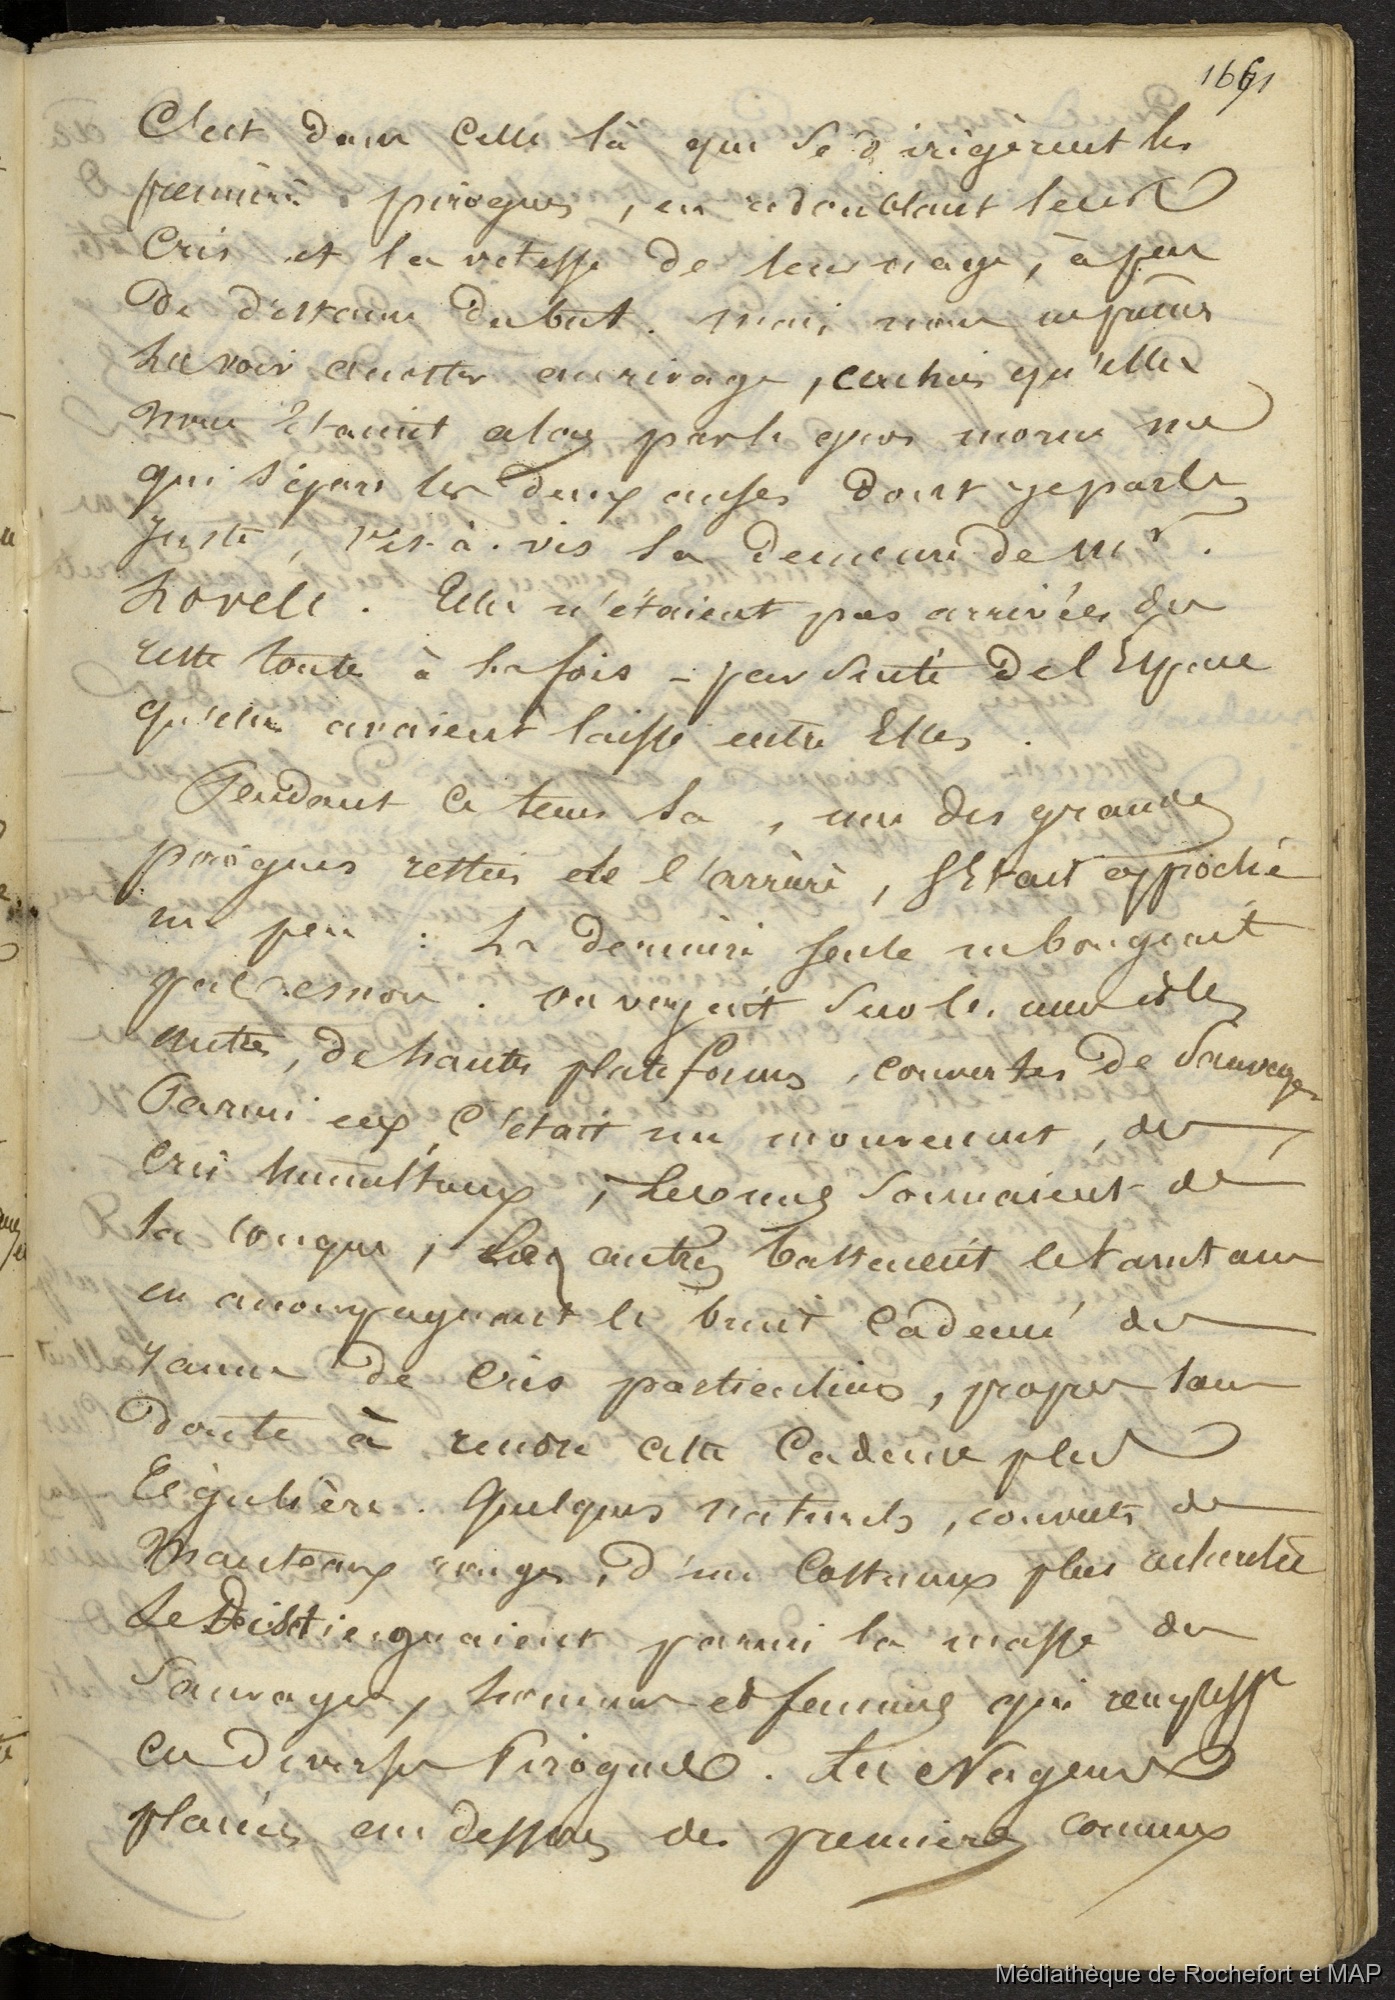 1661
C'est dans celle là que se dirigèrent les
premières pirogues, en redoublant leurs
cris et la vitesse de leur nage, à peu
de distance du but. mais nous ne pûmes
les voir accoster au rivage, cachées qu'elles
nous étaient alors par le gros morne
qui sépare les deux anses dont je parle
juste, vis-à-vis la demeure de Mr.
Lovele. Elles n'étaient pas arrivées du
reste toutes à la fois - par suite de l'Espace
qu'elles avaient laissé entre Elles.
Pendant ce tems la, une des grandes
pirogues restées de l'arrière, s'était approchée
un peu : la dernière seule ne bougeait
pas encore. on voyait sur les unes et les
autres, de hautes plateformes, couvertes de Sauvages
Parmi eux, c'était un mouvement, des
cris tumultueux, les uns sonnaient de
la conque, Les autres battaient le tamtam
en accompagnant le bruit cadencé des
de cris particuliers, propres sans
doute à rendre cette cadence plus
régulière. Quelques naturels, couverts de
Manteaux rouges, d'un Costume plus recherché
se Distinguaient parmi la masse des
Sauvages, hommes et femmes qui rempliss
ces diverses Pirogues. Les Nageurs
placés au dessous des premiers comme
Médiathèque de Rochefort et MAP